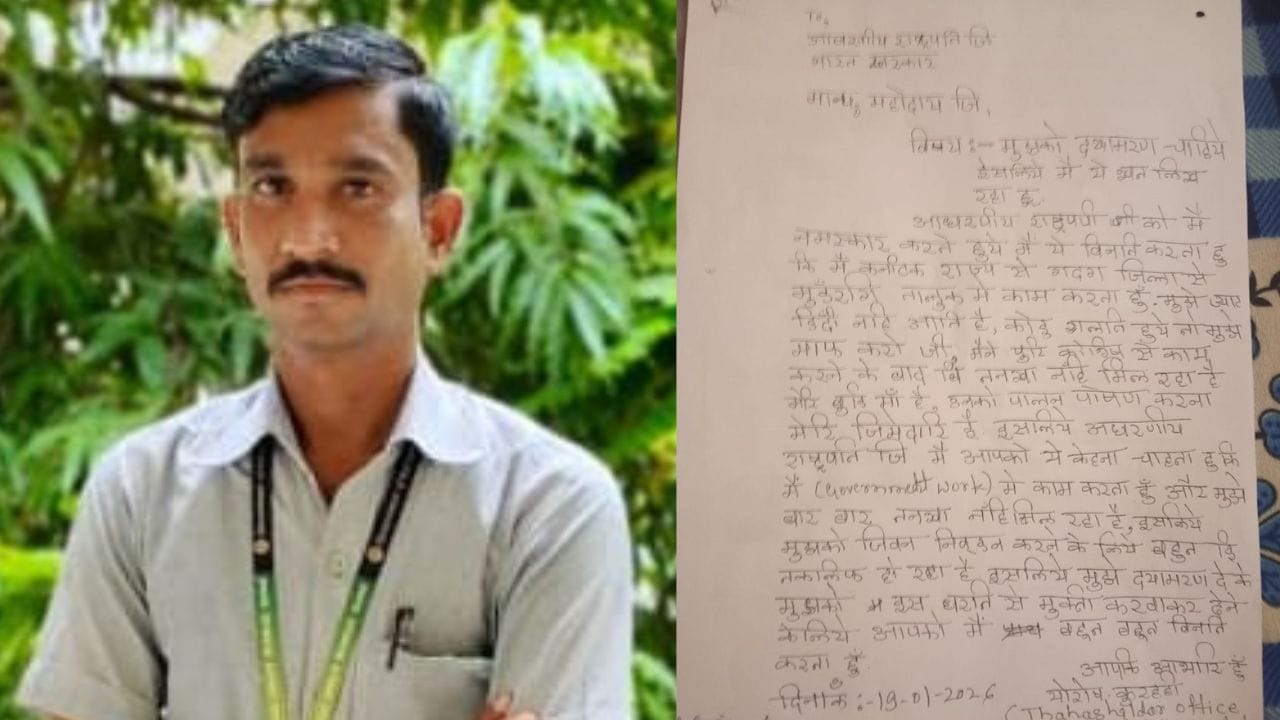 To,
आदरणीय राष्ट्रपति जि
भारत सरकार
मान्य, महोदाय जि,
विषय :- मुझको दयामरण चाहिये
इसलिये मै ये खत लिख
रहा हूँ.
आधरणीय राष्ट्रपती जी को मै
नमस्कार करते हुये मै ये विनति करता हु
कि मै कर्नाटक राज्य से गदग जिल्ला से
मुंडरगि तालुक मे काम करता हुँ. मुझे
हिंदी नहि आति है, कोई गलति हुये तो मुझे
माफ करो जी, मैने पुरि कोशिष से काम
करने के बाद बि तनखा नहि मिल रहा है
मेरि बुडि माँ है, उनका पालन पोषण करना
मेरि जिमेदारि है इसलिये अधरणीय
राष्ट्रपति जि मै आपको ये केहना चाहता हु कि
मै (Government work) मे काम करता हुँ और मुझे
बार बार तनखा नहि मिल रहा है, इसलिये
मुझको जिवन करने के लिये बहुत हि
तकलिफ हो रहा है इसलिये मुझे दयामरण दे के
मुझको इस धरति से मुक्ती करवाकर देने
केलिये आपको मै बहुत बहुत विनति
करता हुँ.
आपकि आभारि हुँ
दिनाँक :- 19-01-2026
(Thahashildar office